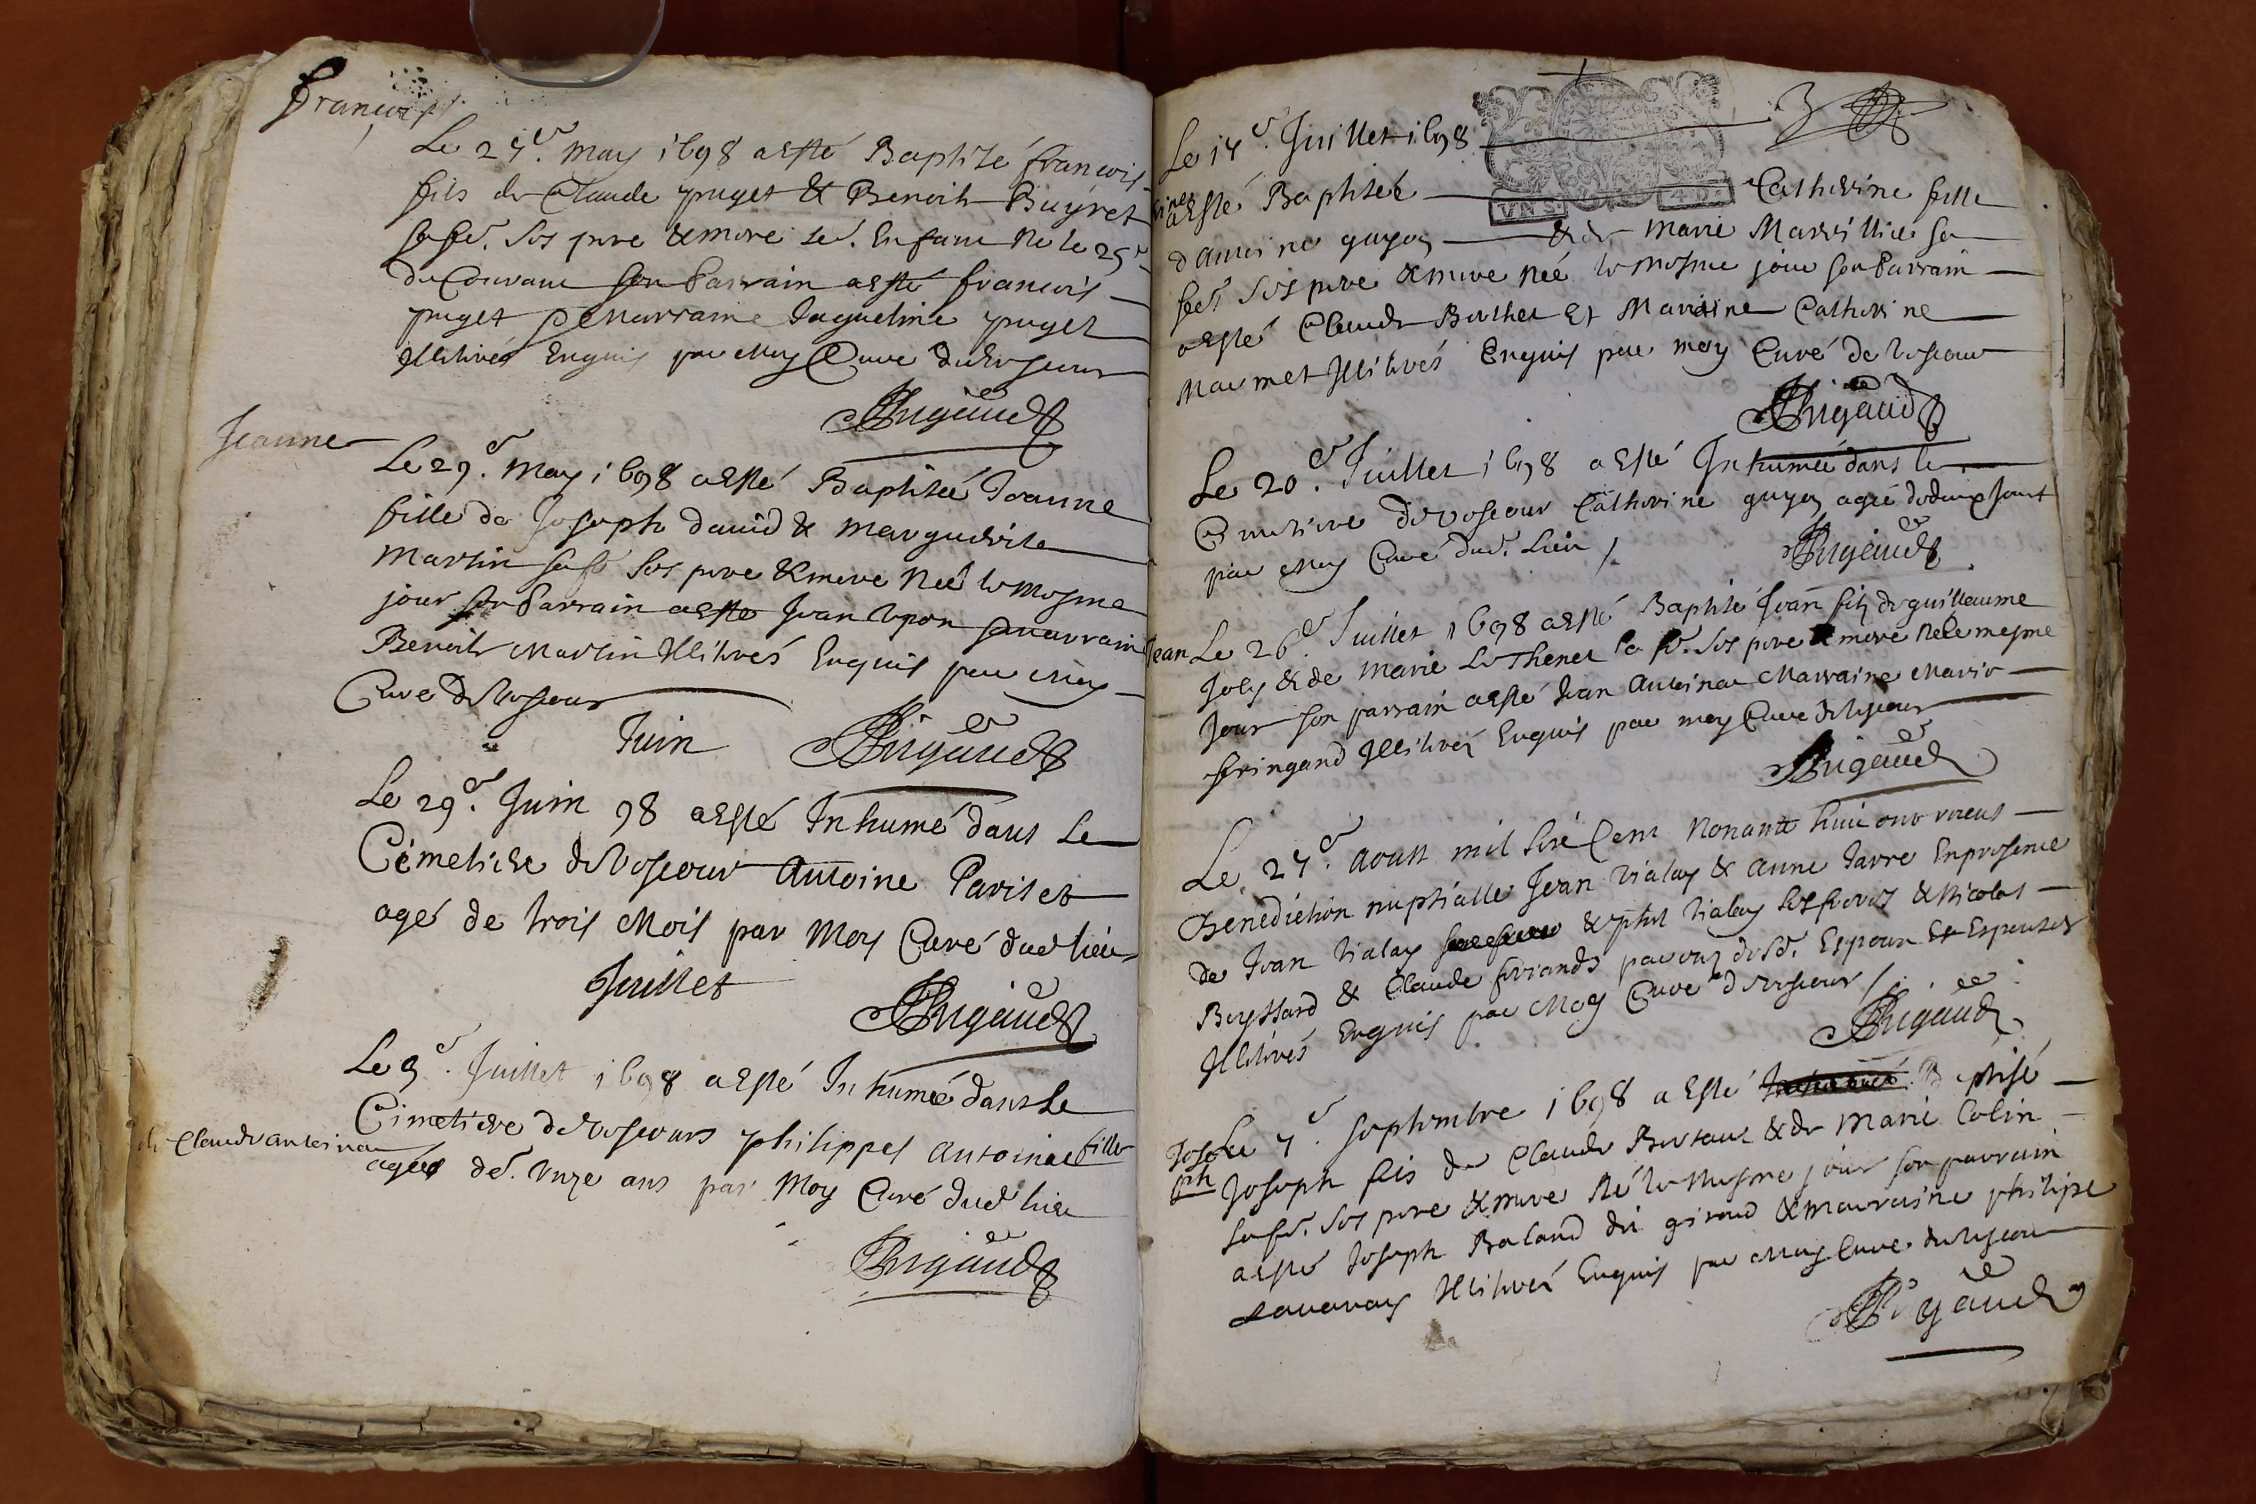 François
Le 27e. May 1698 a Esté Baptisé françois
fils de Claude puget & Benoite Buyret
sa fe. ses pere & mere led. Enfant Ne le 25e
du Courant son Parrain a esté françois
puget & Marraine Jaqueline puget
Illitirés Enquis par Moy Curé de
Rigaud
Jeanne
Le 29e. May 1698 a Esté Baptiseé Jeanne
fille de Joseph david & Marguerite
Martin sa fe ses pere & mere Neé le Mesme
jour son Parrain a esté Jean sa marraine
Benoite Martin Illitirés Enquis par Moy
Curé de
Juin
Rigaud
Le 29e. Juin 98 a Esté Inhumé dans le
Cemetiere de Antoine Pariset
agé de trois Mois par Moy Curé dud lieu
Juillet
Rigaud
Le 9e. Juillet 1698 a Esté Inhumeé dans le
Cimetiere de philippes Antoinae fille
de Claude antoina
ageé de. Unze ans par Moy Curé dud lieu
Rigaud
3
Le 14e. Juillet 1698
VN S 4 D
a Esté Baptiseé Catherine fille
d'antoine guyon & de Marie sa
fe. ses pere & mere Neé le Mesme jour son Parrain
a Esté Claude Berthet Et Maraine Catherine
Marmet Illitirés Enquis par moy Curé de
Rigaud
Le 20e. Juillet 1698 a Esté Inhumeé dans le
Cimetiere de Catherine guyon ageé de jours
par Moy Curé dud. Lieu
Rigaud
Jean
Le 26e. Juillet 1698 a Esté Baptisé Jean filz de guillaume
Joly & de Marie sa fe. ses pere & mere Né le mesme
Jour son parrain a esté Jean Antoina Marraine Marie
fringand Illitirez Enquis par moy Curé de
Rigaud
Le 27e. aoust mil sixe Cent Nonante huict ont receus
Benediction nuptialle Jean Vialay & Anne Favre En presence
de Jean Vialay & phil Vialay ses freres & Nicolas
Buyssard & Claude parens desd. Espoux Et Espouses
Illitirés Enquis par Moy Curé de
Rigaud
Joseph
Le 7e. septembre 1698 a Esté Baptisé
Joseph fils de Claude & de Marie Colin
sa fe. ses pere & mere Né le Mesme jour son parrain
a esté Joseph Baland dit giroud & marraine philipe
Illitirez Enquis par Moy Curé de
Rigaud